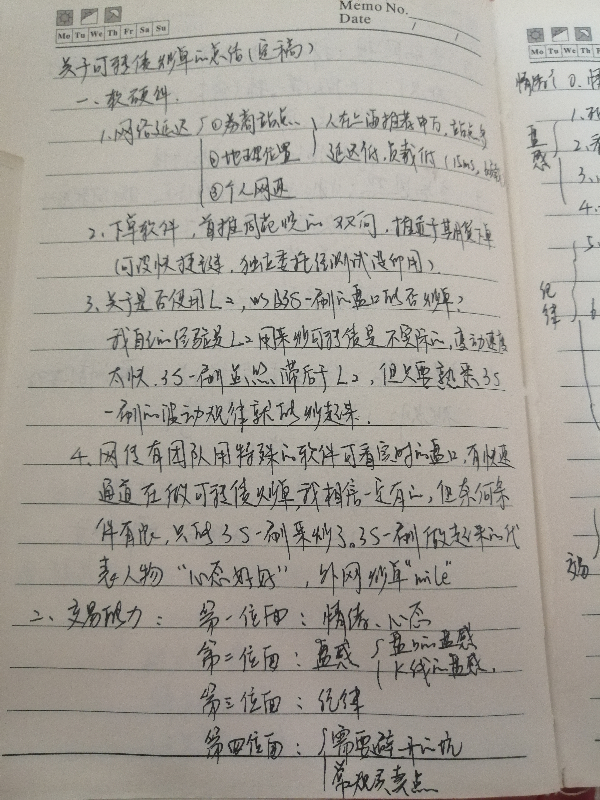 Memo No.
Mo Tu We Th Fr Sa Su
Date / /
关于可转债炒单的总结(定稿)
一、软硬件.
1、网络延迟 ①券商站点、 人在上海推荐申万,站点多
②地理位置 延迟低,负载低(15ms,
③个人网速
2、下单软件,首推同花顺的 双向,推荐于其
(可设快捷键,独立委托经测试没卵用)
3、关于是否使用L2,以及3S一刷的盘口能否炒单?
我自己的经验是L2用来炒可转债是不实际的,变动速度
太快,3S一刷虽然滞后于L2,但只要熟悉3S
一刷的波动规律就能炒起来.
4、网传有团队用特殊的软件可看实时的盘口,有快速
通道在做可转债炒单,我相信一定有的,但奈何条
件有限,只能3S一刷来炒了。3S一刷做起来的代
表人物“心态好好”,外网炒单“mile”
二、交易能力: 第一位面:情绪、心态
第二位面:盘感 盘口的盘感
K线的盘感.
第三位面:纪律
第四位面: 需要避开的坑
常规买卖点
Mo Tu We Th
情绪 0.
盘感
1.
2.
3.
4.
5.
纪律
6